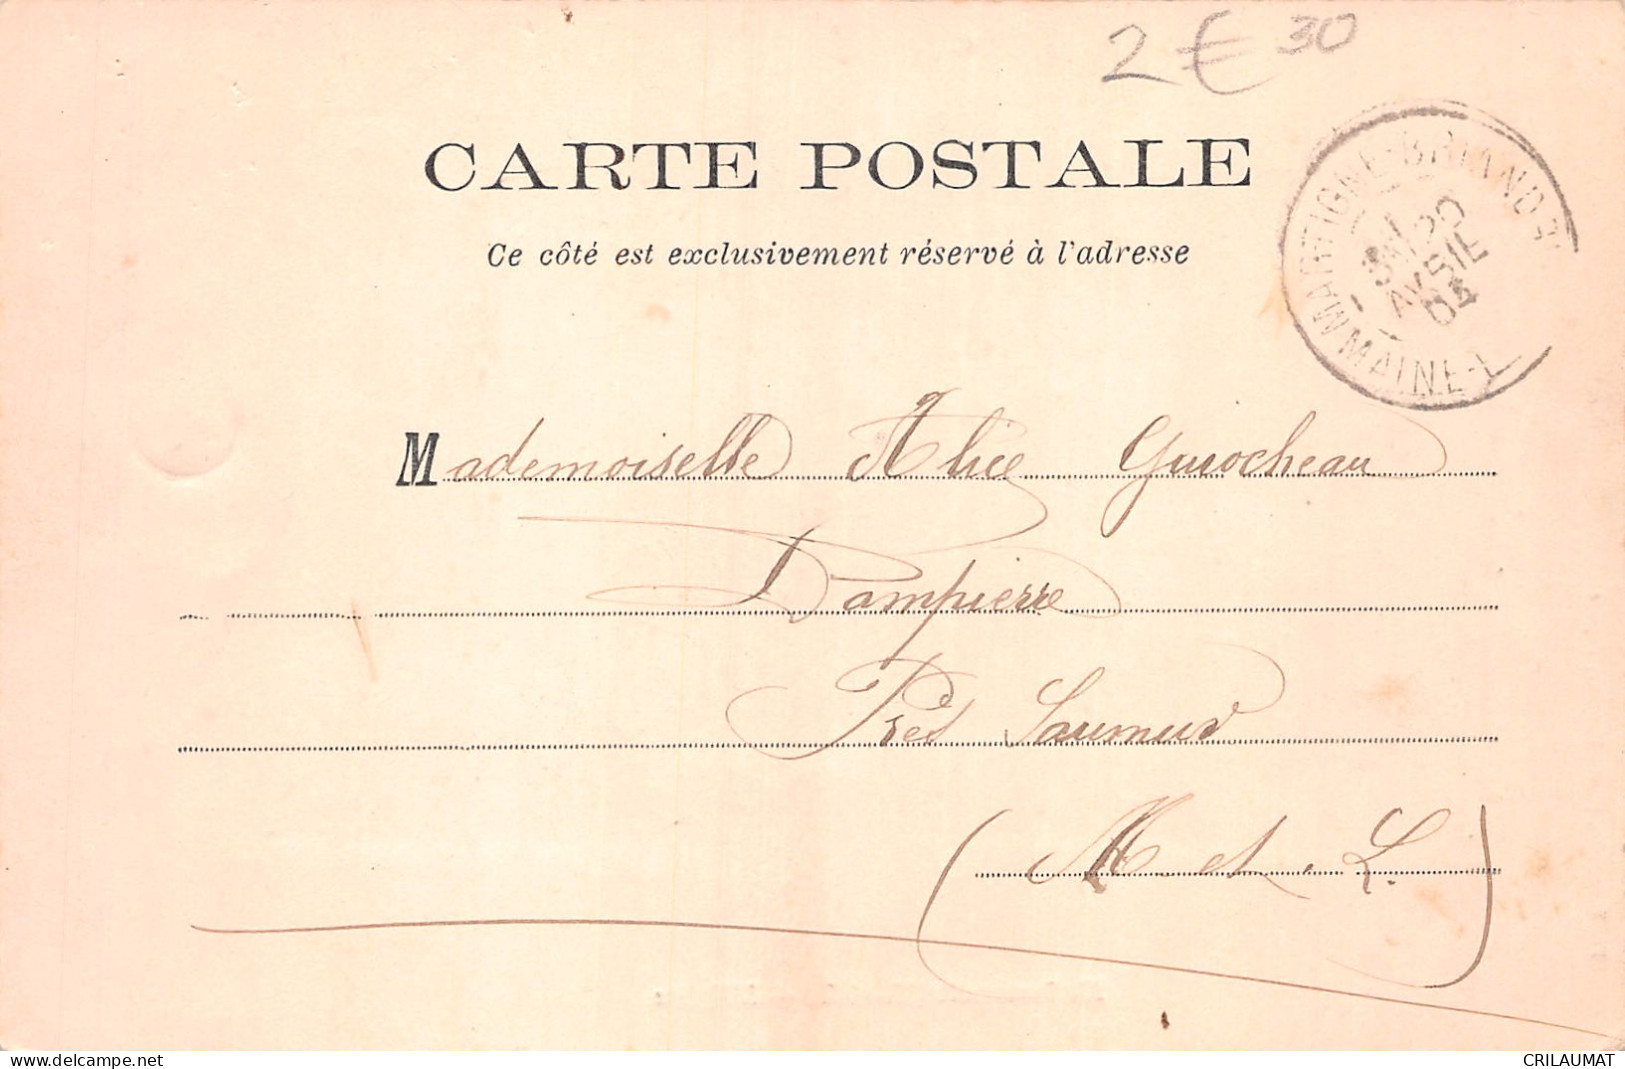 2 € 30
CARTE POSTALE
Ce côté est exclusivement réservé à l'adresse
MARTIGNE-BRIAND
20
AVRIL
04
MAINE-
Mademoiselle Alice
Dampierre
Près Saumur
(M et L.)
www.delcampe.net
CRILAUMAT